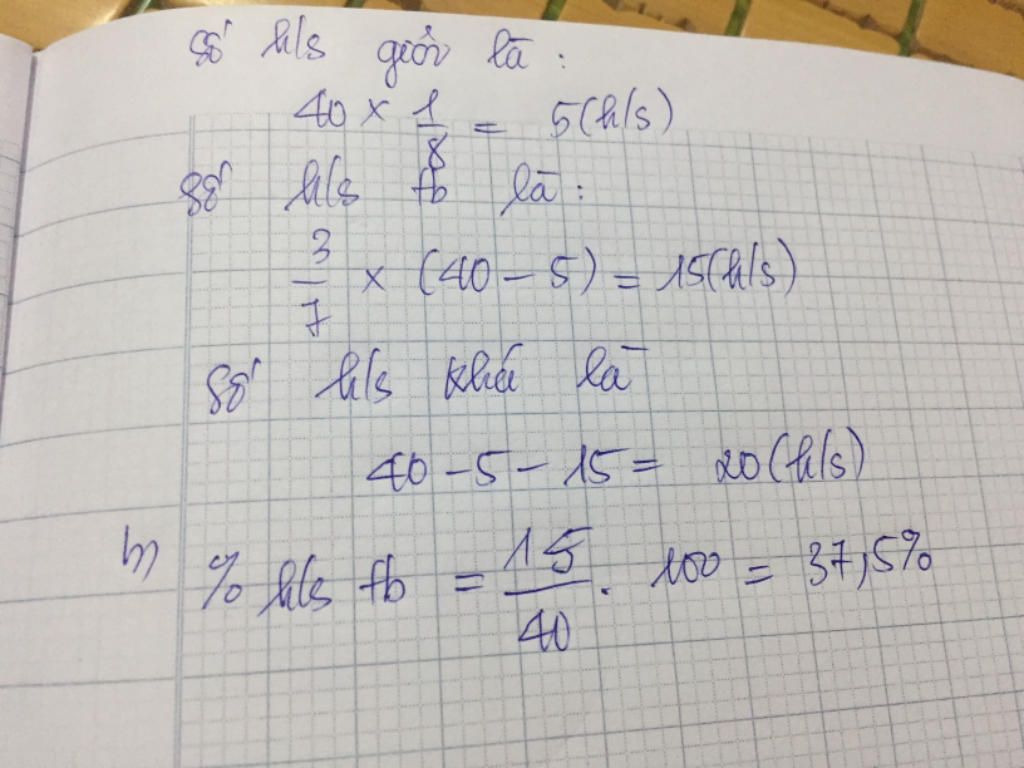 Số h/s giỏi là :
40 × 1/8 = 5(h/s)
Số h/s tb là :
3/7 × (40 - 5) = 15(h/s)
Số h/s khá là
40 - 5 - 15 = 20(h/s)
b, % h/s tb = 15/40 . 100 = 37,5%